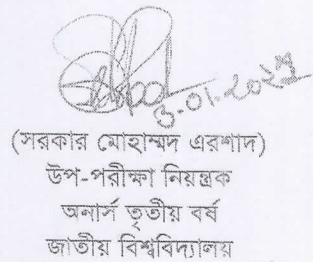 (সরকার মোহাম্মদ এরশাদ)
উপ-পরীক্ষা নিয়ন্ত্রক
অনার্স তৃতীয় বর্ষ
জাতীয় বিশ্ববিদ্যালয়